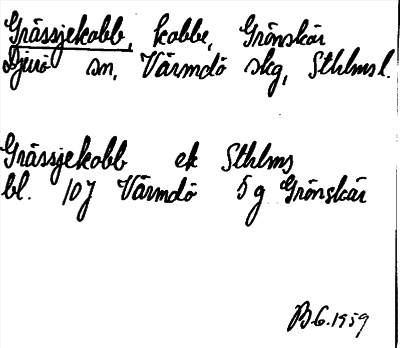 Grässjekobb, kobbe, Grönskär
Djurö sn, Värmdö skg, Sthlmsl.
Grässjekobb ek Sthlms
bl. 10J Värmdö 5g Grönskär
B.G. 1959